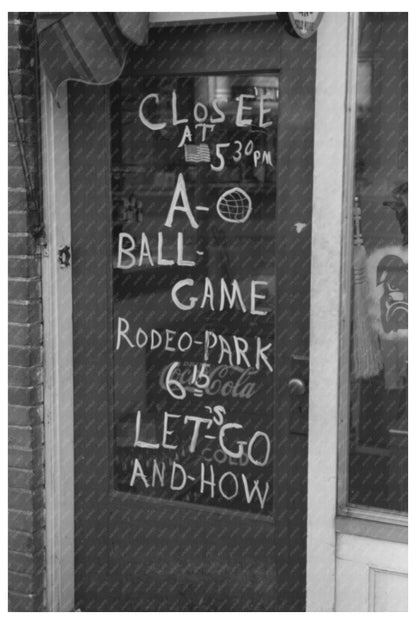 CLOSE'E
AT
5 30 PM
A-
BALL-
GAME
RODEO-PARK
Coca-Cola
6 15
LET'S-GO
COLD
AND-HOW